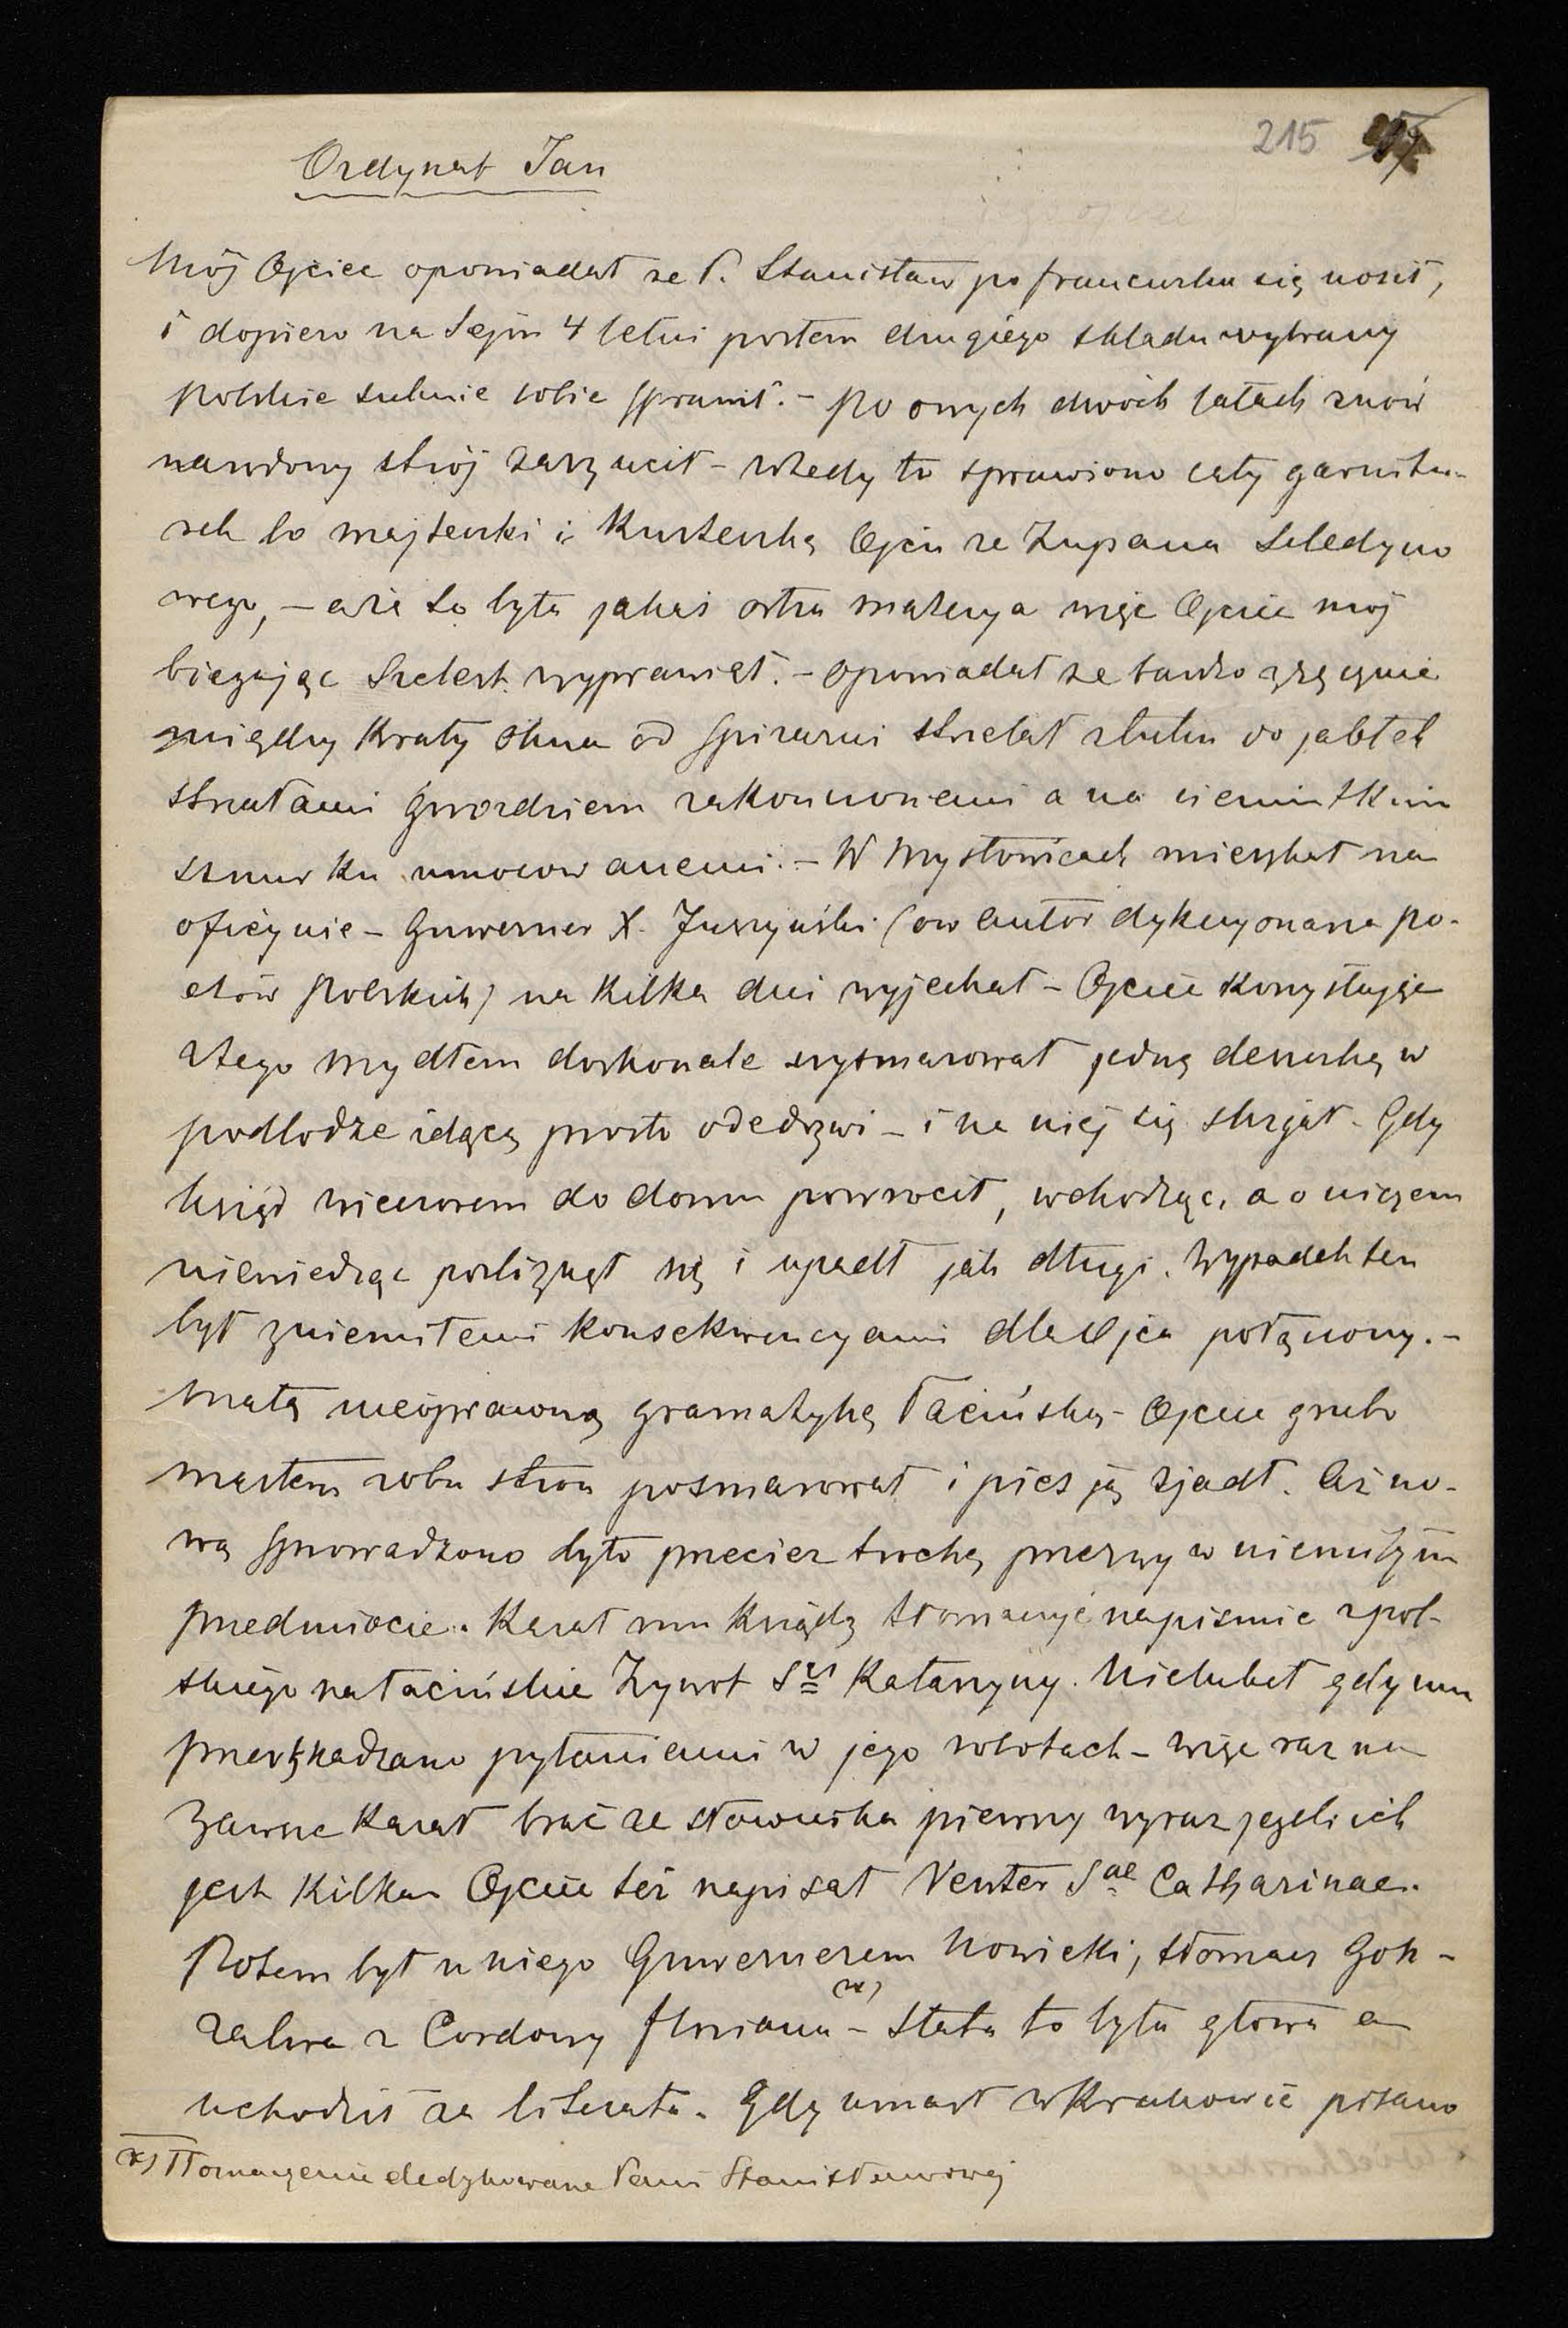 215
Ordynat Jan
Mój Ojciec opowiadał ze P. Stanisław po francusku się nosił,
i dopiero na Sejm 4 letni posłem drugiego składu wybrany
polskie suknie sobie sprawił. – po owych dwóch latach znów
narodowy strój zarzucił – wtedy to sprawiono cały garnitu-
rek to majteczki i kurteczkę Ojcu ze Żupana Seledyno
wego, – a że to była jakaś ostra materya więc Ojciec mój
biegając Szelest wyprawiał. – opowiadał ze bardzo zręcznie
między kraty okna od spiżarni strzelał z łuku do jabłek
strzałami gwozdziem zakonczonemi a na cieniutkim
sznurku umocowanemi. – W Mysłowicach mieszkał na
oficynie – Guwerner X. Juszyński (ow autor dykcyonarza po-
etów polskich) na kilka dni wyjechał – Ojciec korzystając
ztego mydłem doskonale wysmarował jedną deseczkę w
podłodze idącą prosto ode drzwi – i na niej się slizgał – Gdy
ksiądz wieczorem do domu powrocił, wchodząc, a o niczem
niewiedząc poslizgnął się i upadł jak długi. Wypadek ten
był z niemiłemi konsekwencyami dla Ojca połączony. –
małą nieoprawną gramatykę łacińską – Ojciec grubo
masłem z obu stron posmarował i pies ją zjadł. Aż no-
wą sprowadzono było przeciez trochę przerwy w niemiłym
przedmiocie. Kazał mu ksiądz tłomaczyć na pismie z pol-
skiego na łacińskie Żywot Stej Katarzyny. Nielubił gdy mu
przeszkadzano pytaniami w jego robotach – więc raz na
zawsze kazał brać ze słownika pierwszy wyraz jezeli ich
jest kilka Ojciec też napisał Venter Sae Catharinae.
Potem był u niego Guwernerem Nowicki, tłomacz Gon-
zalwa z Cordowy Floriana x) – Słaba to była głowa a
uchodził za literata. Gdy umarł w Krakowie pisano
x) Tłomaczenie dedykowane Pani Stanisławowej